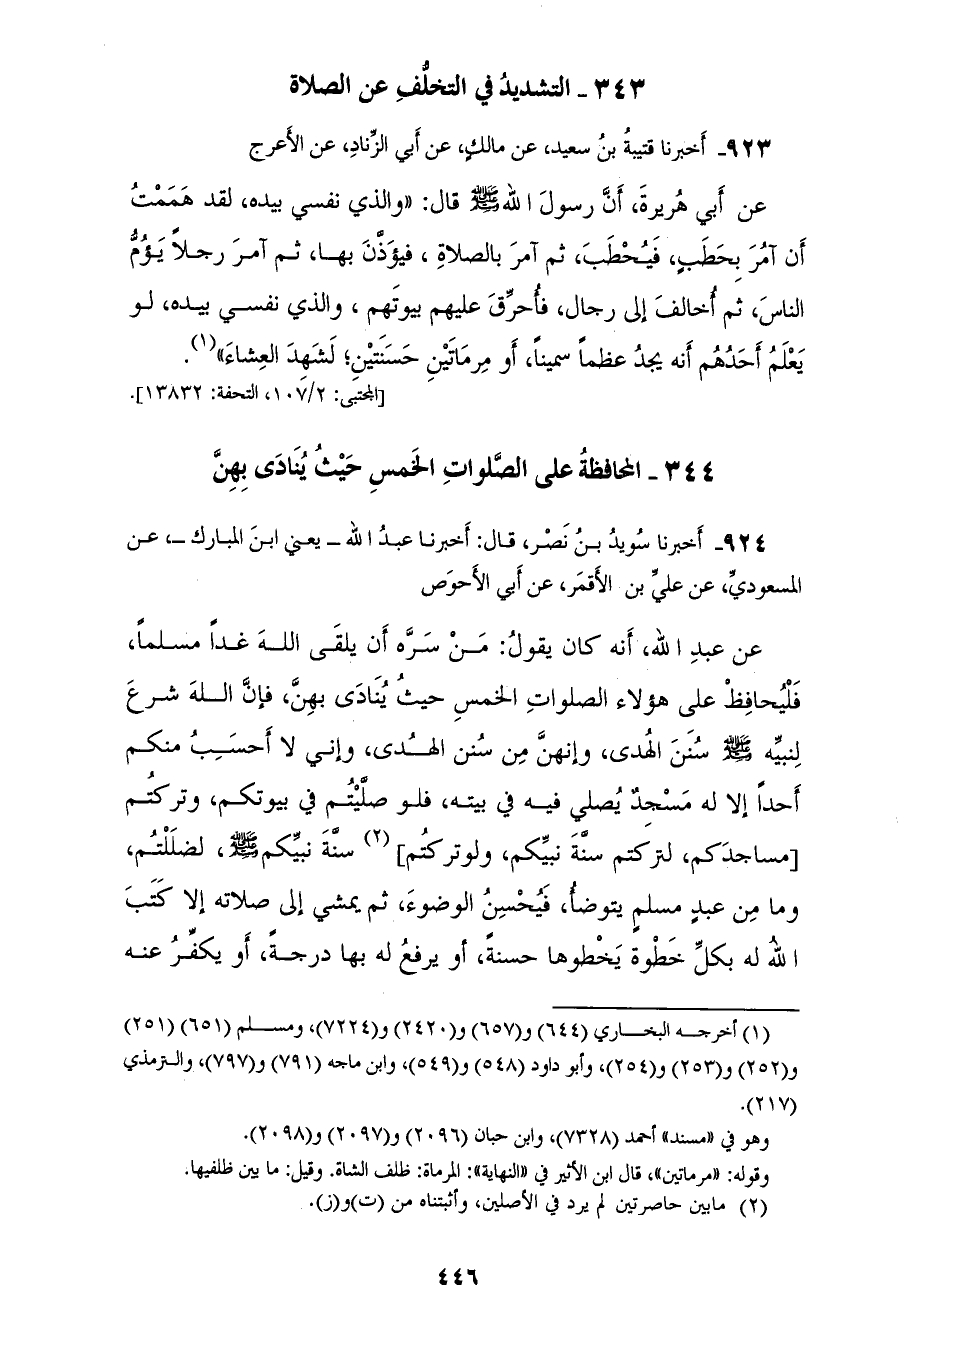 ٣٤٣ ـ التشديدُ في التخلُّفِ عن الصلاة
٩٢٣ـ أَخبرنا قتيبةُ بنُ سعيد، عن مالكٍ، عن أَبي الزِّنادِ، عن الأَعرج
عن أَبي هُريرةَ، أَنَّ رسولَ اللهﷺ قال: «والذي نفسي بيده، لقد هَمَمْتُ
أَن آمُرَ بِحَطَبٍ، فَيُحْطَبَ، ثم آمرَ بالصلاةِ، فيؤذَّنَ بهـا، ثـم آمـرَ رجـلاً يَـؤُمُّ
الناسَ، ثم أُخالفَ إلى رجال، فأُحرِّقَ عليهم بيوتَهم، والذي نفسـي بيـده، لـو
يَعْلَمُ أَحَدُهُم أنه يجدُ عظماً سميناً، أو مِرمَاتَيْنِ حَسَنَتَيْنِ؛ لَشَهِدَ العِشاءَ»(١).
[المجتبى: ١٠٧/٢، التحفة: ١٣٨٣٢].
٣٤٤ ـ المحافظةُ على الصَّلواتِ الخَمسِ حَيْثُ يُنَادَى بِهِنَّ
٩٢٤ـ أَخبرنا سُويدُ بـنُ نَصْرٍ، قـال: أَخبرنـا عبـدُ الله ـ يعـني ابـنَ المبارك ـ، عـن
المسعوديِّ، عن عليِّ بن الأَقمَر، عن أَبي الأَحوَص
عن عبدِ الله، أنه كان يقولُ: مَـنْ سَرَّه أن يلقَـى اللـهَ غـداً مسـلماً،
فَلْيُحافِظْ على هؤلاء الصلواتِ الخمسِ حيثُ يُنَادَى بهِنَّ، فإنَّ اللـهَ شـرعَ
لِنبيِّه ﷺ سُنَنَ الهُدى، وإنهنَّ مِن سُننِ الهـدى، وإنـي لا أَحسَـبُ منكـم
أَحداً إلا له مَسْجِدٌ يُصلي فيـه في بيتـه، فلـو صلَّيْتُـم في بيوتكـم، وتركتُـم
[مساجدَكم، لتركتم سنَّةَ نبيِّكم، ولوتركتُم](٢) سنَّةَ نبيِّكمﷺ، لضللْتُـم،
وما مِن عبدٍ مسلمٍ يتوضأُ، فَيُحْسِنُ الوضوءَ، ثم يمشي إلى صلاته إلا كَتَبَ
اللهُ له بكلِّ خَطْوة يَخْطوها حسنةً، أو يرفعُ له بها درجـةً، أَو يكفِّـرُ عنـه
(١) أخرجـه البخـاري (٦٤٤) و(٦٥٧) و(٢٤٢٠) و(٧٢٢٤)، ومسـلم (٦٥١) (٢٥١)
و(٢٥٢) و(٢٥٣) و(٢٥٤)، وأبو داود (٥٤٨) و(٥٤٩)، وابن ماجه (٧٩١) و(٧٩٧)، والـترمذي
(٢١٧).
وهو في «مسند» أحمد (٧٣٢٨)، وابن حبان (٢٠٩٦) و(٢٠٩٧) و(٢٠٩٨).
وقوله: «مرماتين»، قال ابن الأثير في «النهاية»: المرماة: ظلف الشاة. وقيل: ما بين ظلفيها.
(٢) مابين حاصرتين لم يرد في الأصلين، وأثبتناه من (ت)و(ز).
٤٤٦